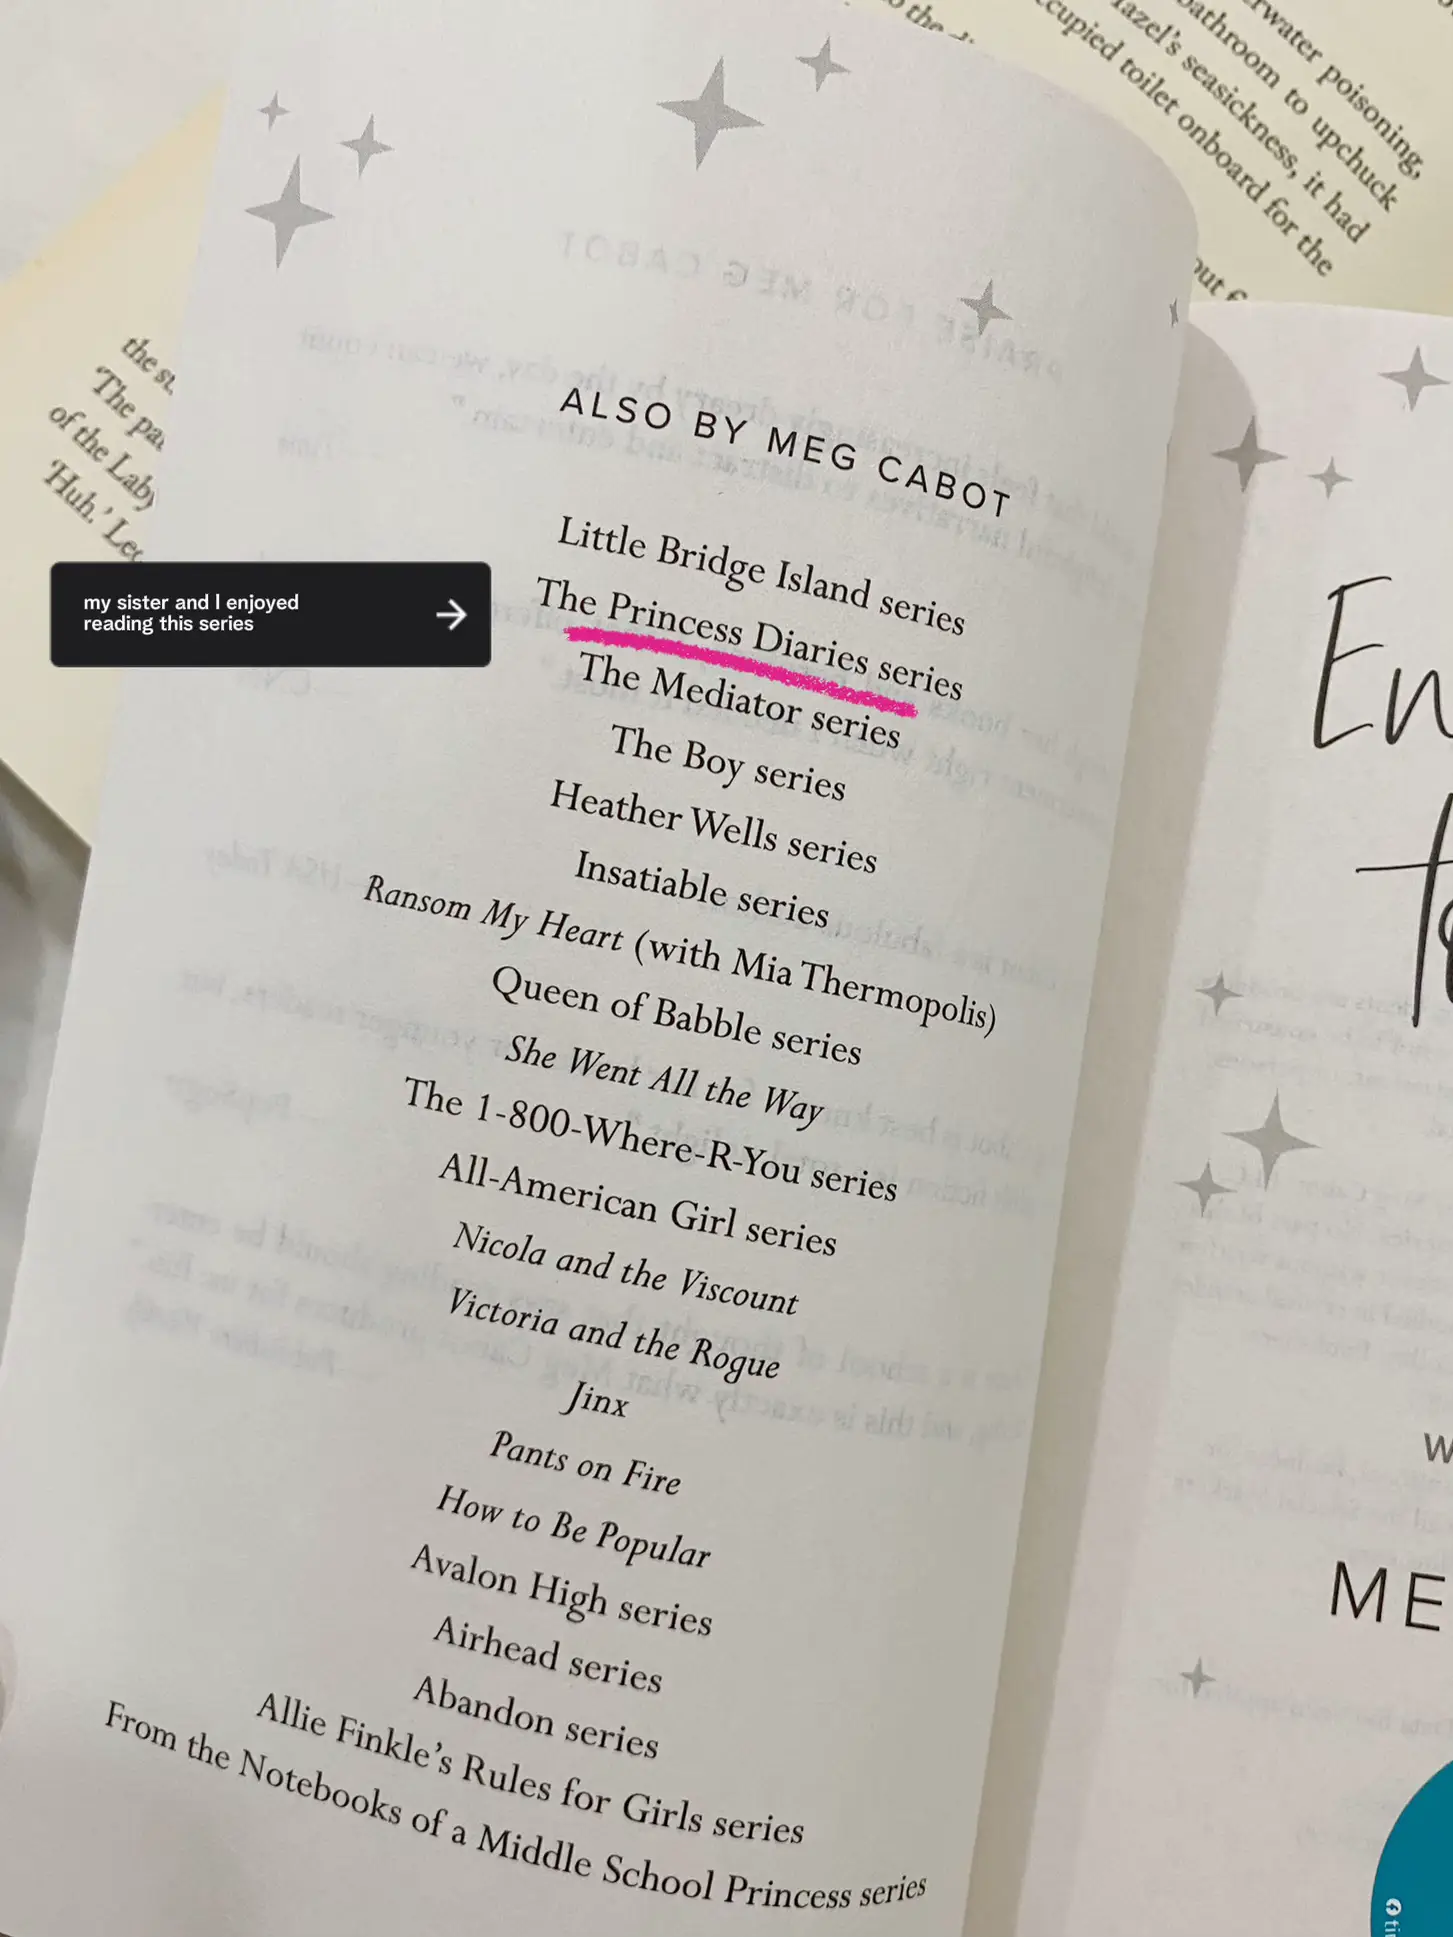 erwater poisoning,
bathroom to upchuck
Hazel's seasickness, it had
ccupied toilet onboard for the
to the
out
the su
'The pa
of the Laby
'Huh.' Leo
PRAISE FOR MEG CABOT
ALSO BY MEG CABOT
Little Bridge Island series
The Princess Diaries series
my sister and I enjoyed
reading this series
The Mediator series
The Boy series
Heather Wells series
Insatiable series
Ransom My Heart (with Mia Thermopolis)
Queen of Babble series
She Went All the Way
The 1-800-Where-R-You series
All-American Girl series
Nicola and the Viscount
Victoria and the Rogue
Jinx
Pants on Fire
How to Be Popular
Avalon High series
Airhead series
Abandon series
Allie Finkle's Rules for Girls series
From the Notebooks of a Middle School Princess series
En
t
W
ME
ti